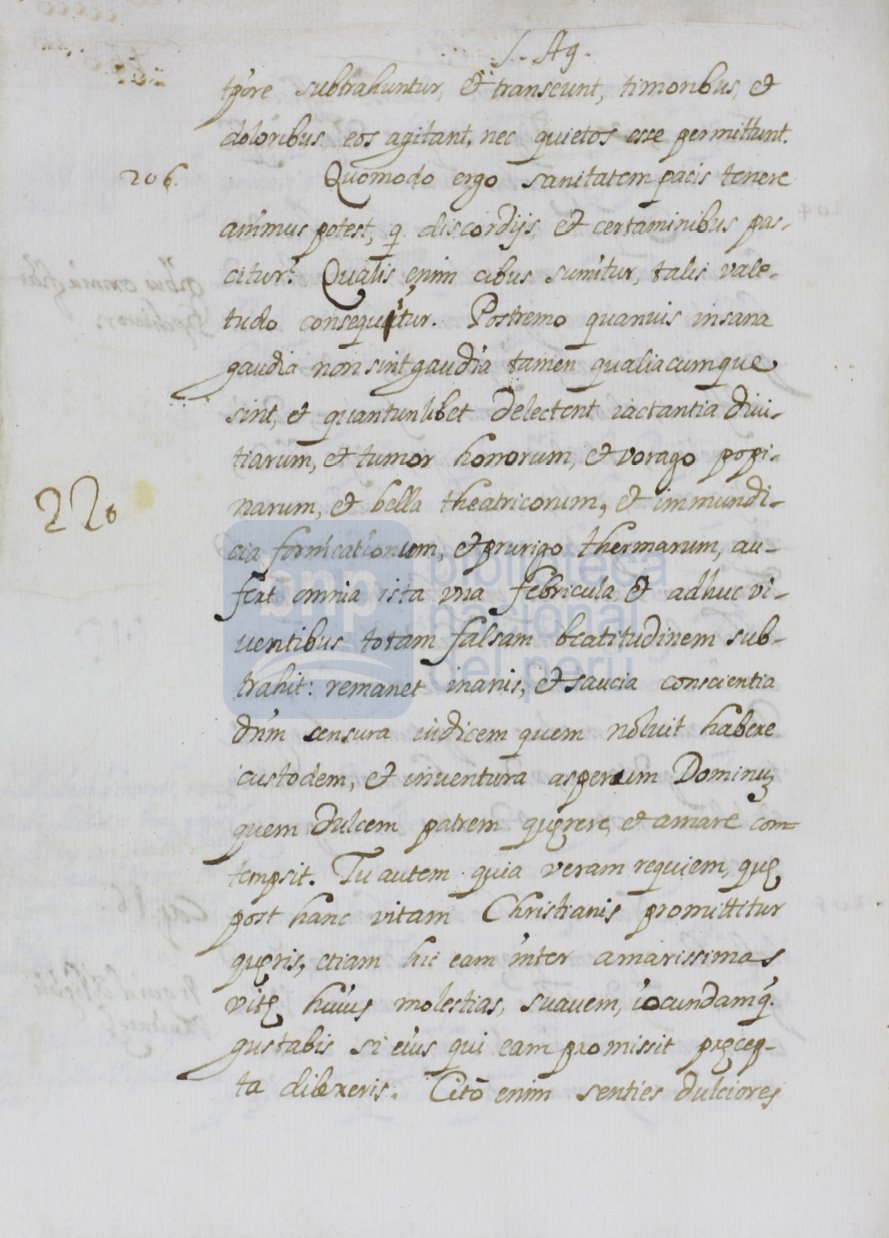 S. Ag.
tp̃ore subtrahuntur, et transeunt, timoribus, et
doloribus eos agitant, nec quietos esse permittunt.
206. Quomodo ergo sanitatem pacis tenere
animus potest, q̃ discordijs, et certaminibus pas-
citur? Qualis enim cibus sumitur, talis vale-
tudo consequitur. Postremo quanuis insana
gaudia non sint gaudia tamen qualiacumque
sint, et quantunlibet delectent iactantia divi-
tiarum, et tumor honorum, et vorago popi-
220
narum, et bella theatricorum, et immundi-
cia fornicationum, et prurigo thermarum, au-
fert omnia ista vna febricula, et adhuc vi-
ventibus totam falsam beatitudinem sub-
trahit: remanet inanis, et saucia conscientia
dnm̃ sensura iudicem quem noluit habere
custodem, et inventura asperum Dominũ
quem dulcem patrem quęrere, et amare con-
tempsit. Tu autem quia veram requiem, quę
post hanc vitam Christianis promittitur
quęris, etiam hic eam inter amarissimas
vitę huius molestias, suavem, iocundamq̃.
gustabis si eius qui eam promissit pręcep-
ta dilexeris. Citò enim senties dulciores
biblioteca
nacional
del perú
bnp